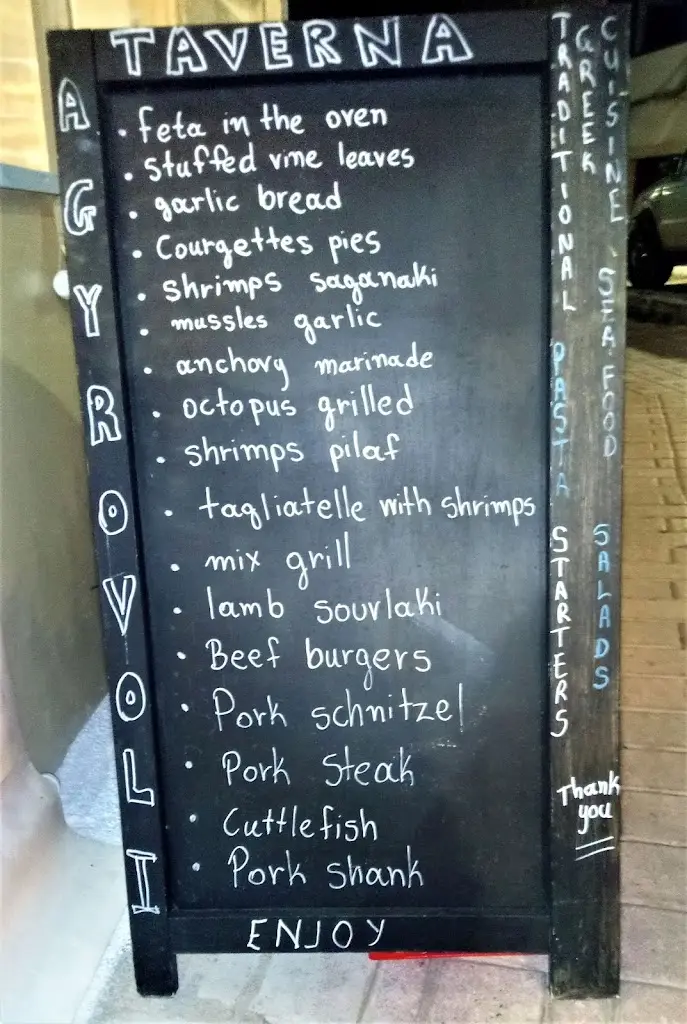 TAVERNA
AGYROVOLI
• feta in the oven
• stuffed vine leaves
• garlic bread
• Courgettes pies
• shrimps saganaki
• mussles garlic
• anchovy marinade
• octopus grilled
• shrimps pilaf
• tagliatelle with shrimps
• mix grill
• lamb souvlaki
• Beef burgers
• Pork schnitzel
• Pork Steak
• Cuttlefish
• Pork shank
ENJOY
TRADITIONAL
GREEK
CUISINE
PASTA
SEA FOOD
STARTERS
SALADS
Thank
you